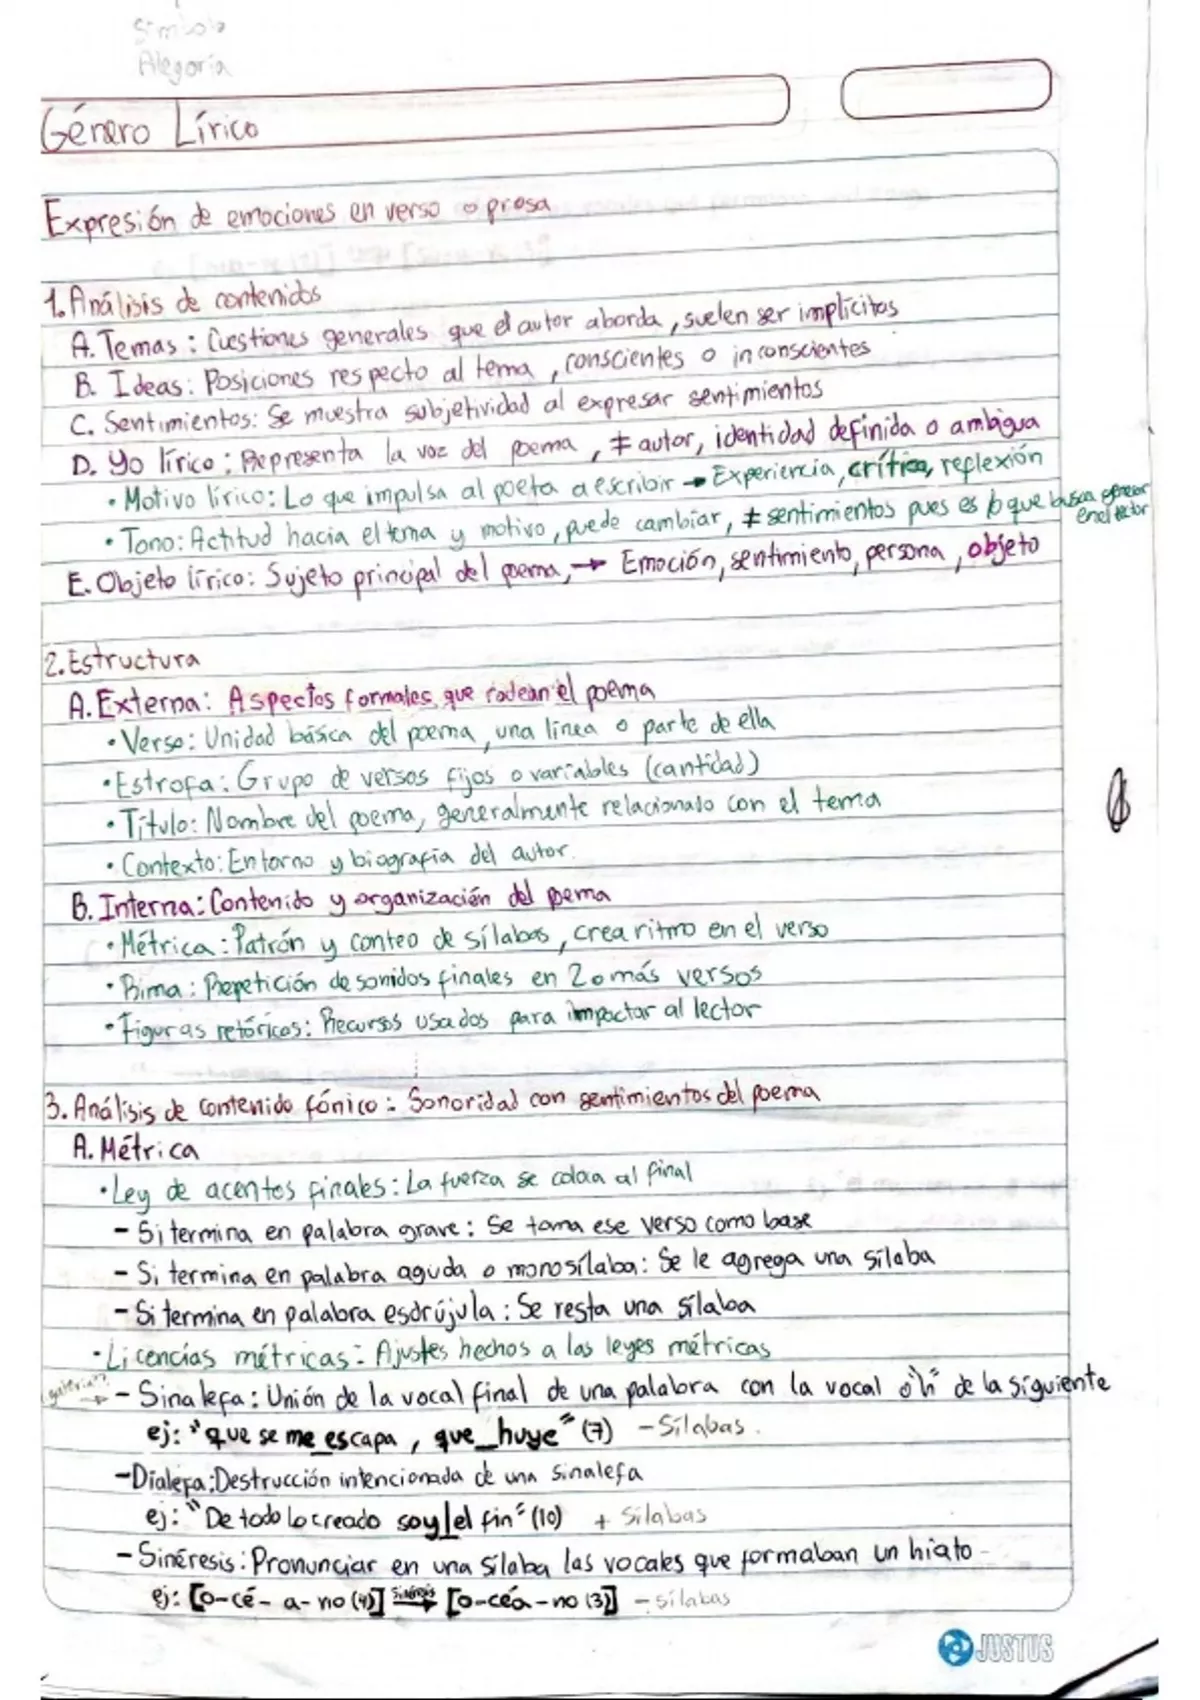 Símbolo
Alegoría
Género Lírico
Expresión de emociones en verso o prosa
1. Análisis de contenidos
A. Temas: Cuestiones generales que el autor aborda, suelen ser implícitas
B. Ideas: Posiciones respecto al tema, conscientes o inconscientes
C. Sentimientos: Se muestra subjetividad al expresar sentimientos
D. Yo lírico: Representa la voz del poema, ≠ autor, identidad definida o ambigua
• Motivo lírico: Lo que impulsa al poeta a escribir → Experiencia, crítica, reflexión
• Tono: Actitud hacia el tema y motivo, puede cambiar, ≠ sentimientos pues es lo que busca generar
en el lector
E. Objeto lírico: Sujeto principal del poema, → Emoción, sentimiento, persona, objeto
2. Estructura
A. Externa: Aspectos formales que rodean el poema
• Verso: Unidad básica del poema, una línea o parte de ella
• Estrofa: Grupo de versos fijos o variables (cantidad)
• Título: Nombre del poema, generalmente relacionado con el tema
• Contexto: Entorno y biografía del autor.
B. Interna: Contenido y organización del poema
• Métrica: Patrón y conteo de sílabas, crea ritmo en el verso
• Rima: Repetición de sonidos finales en 2 o más versos
• Figuras retóricas: Recursos usados para impactar al lector
3. Análisis de contenido fónico: Sonoridad con sentimientos del poema
A. Métrica
• Ley de acentos finales: La fuerza se coloca al final
- Si termina en palabra grave: Se toma ese verso como base
- Si termina en palabra aguda o monosílaba: Se le agrega una sílaba
- Si termina en palabra esdrújula: Se resta una sílaba
• Licencias métricas: Ajustes hechos a las leyes métricas
- Sinalefa: Unión de la vocal final de una palabra con la vocal o "h" de la siguiente
ej: "que se me_escapa, que_huye" (7) - Sílabas.
- Dialefa: Destrucción intencionada de una sinalefa
ej: "De todo lo creado soy|el fin" (10) + Sílabas
- Sinéresis: Pronunciar en una sílaba las vocales que formaban un hiato
ej: [o-cé-a-no (4)] sinéresis → [o-céa-no (3)] - sílabas
JUSTUS